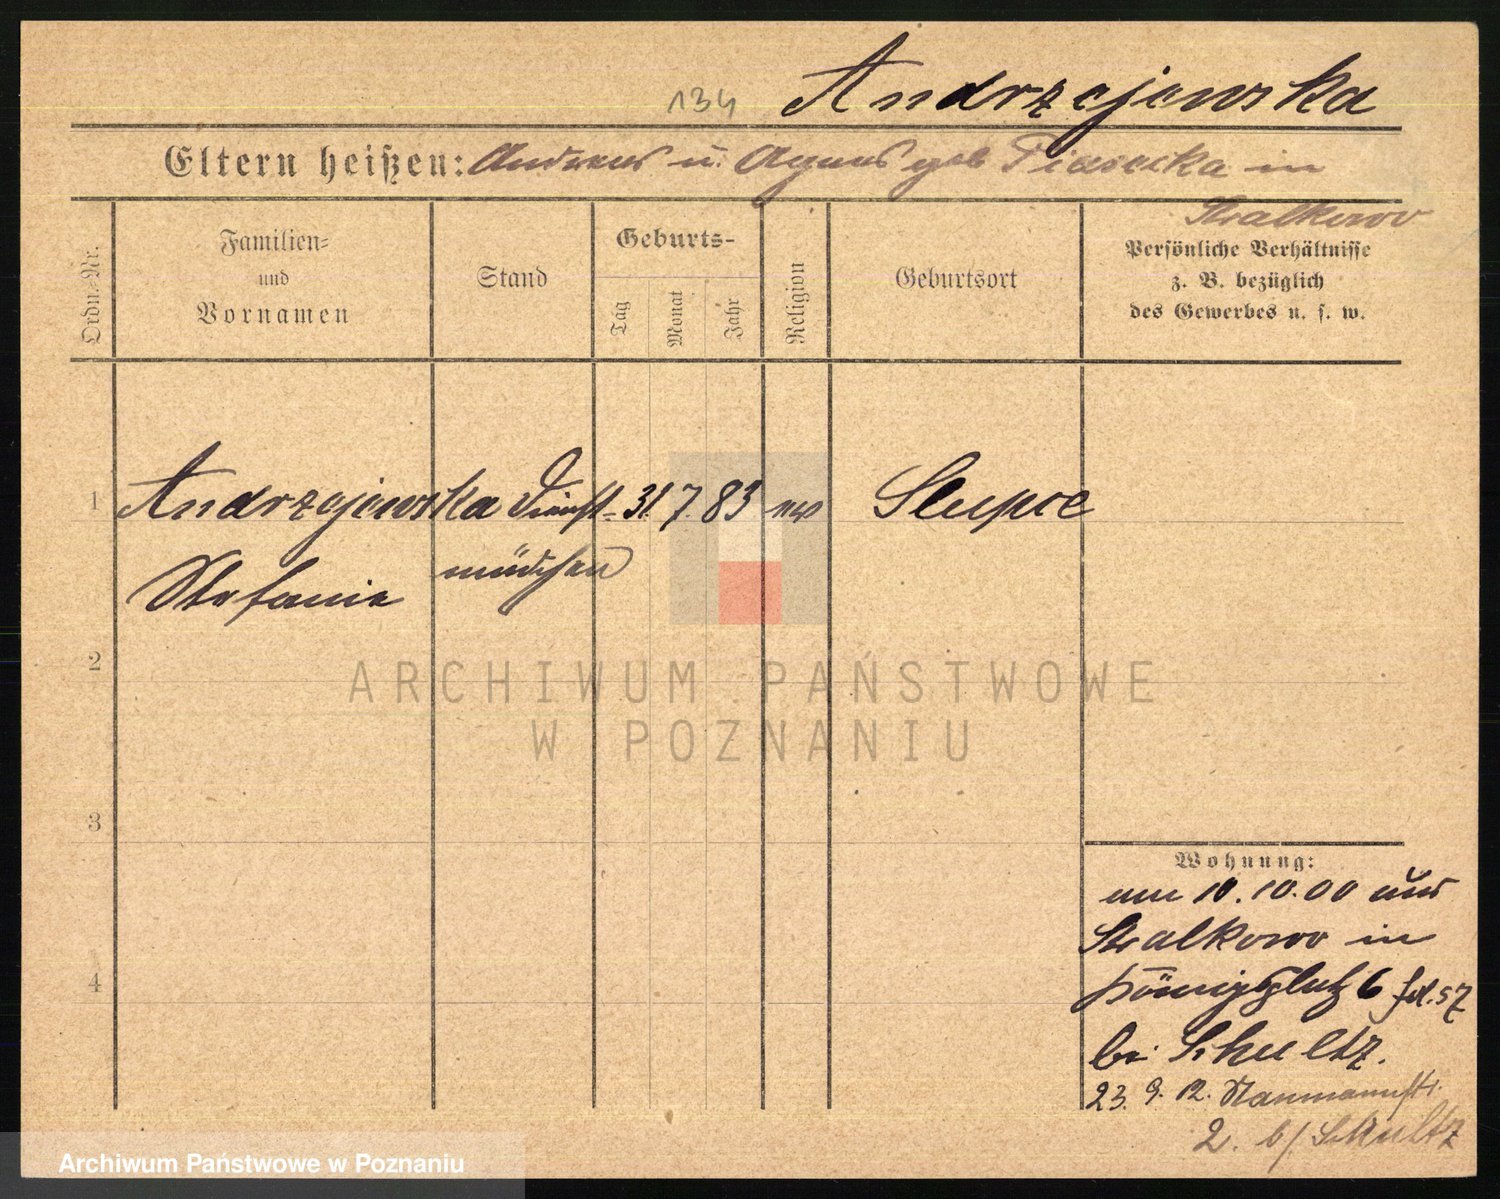 134 Andrzejewska
Eltern heißen: Andreas u. Agnes geb Piasecka in
Stralkowo
Ordn.-Nr.
Familien-
und
Vornamen
Stand
Geburts-
Tag
Monat
Jahr
Religion
Geburtsort
Persönliche Verhältnisse
z. B. bezüglich
des Gewerbes u. s. w.
1 Andrzejewska Dienst- 31. 7. 83 Slupce
Stefanie mädchen
2
ARCHIWUM PAŃSTWOWE
W POZNANIU
3
Wohnung:
am 10.10.00 aus
Stralkowo in
4
Königsplatz 6
bei Schultz.
23. 9. 12. Naumannstr.
2. b/ Schultz
Archiwum Państwowe w Poznaniu